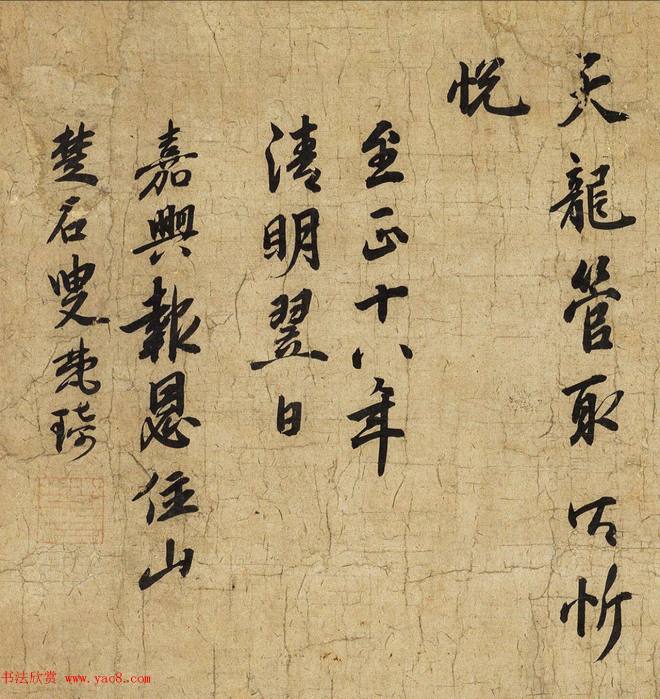 天龍管取同忻
悦
至正十八年
清明翌日
嘉興報恩住山
楚石叟梵琦
书法欣赏 www.yac8.com